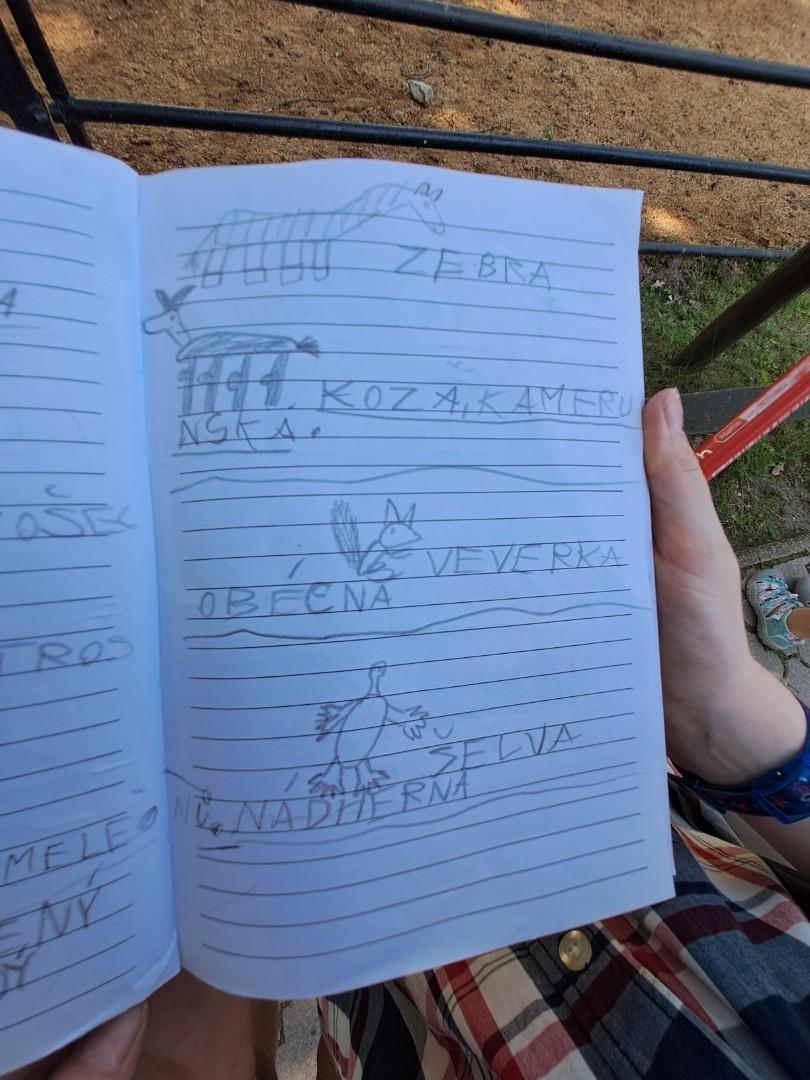 OŠEK
TROS
MELEO
ENÝ
ZEBRA
KOZA, KAMERU
NSKÁ.
VEVERKA
OBÉCNÁ
ŠELVA
NÁDHERNÁ